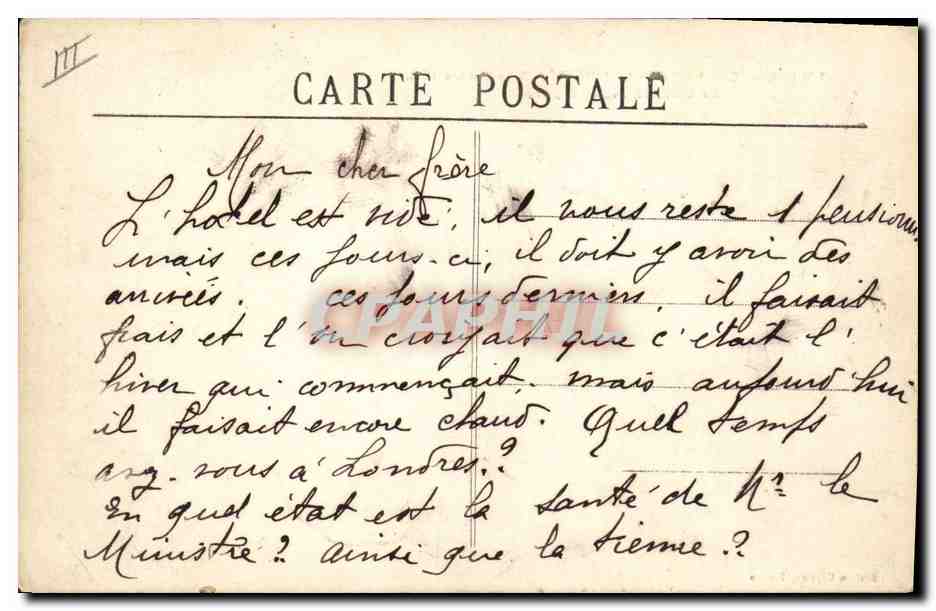 III
CARTE POSTALE
Mon cher frère
L'hotel est vide, il nous reste 1 pensionn
mais ces jours-ci, il doit y avoir des
arrivées. ces jours derniers, il faisait
frais et l'on croyait que c'était l'
hiver qui commençait. mais aujourd'hui
il faisait encore chaud. Quel temps
avez-vous à Londres.?
En quel état est la santé de Mr le
Ministre? ainsi que la tienne.?
CPAPHIL